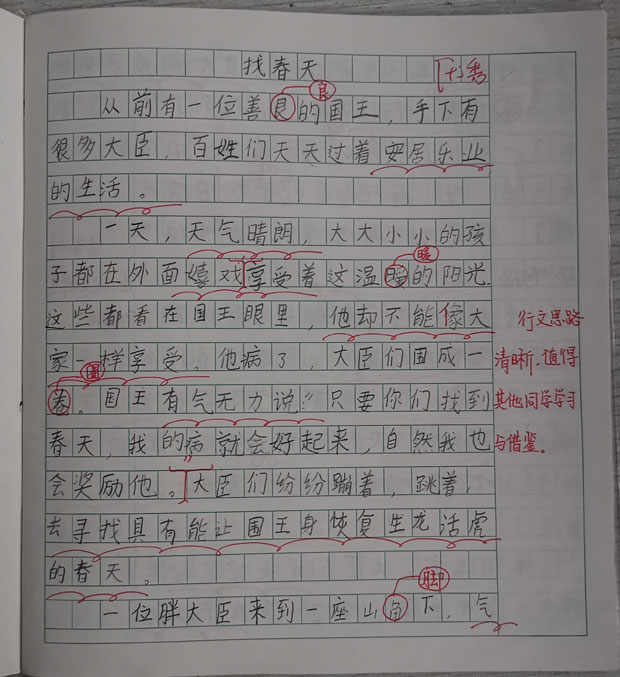 找春天
优秀
从前有一位善良的国王，手下有
良
很多大臣，百姓们天天过着安居乐业
的生活。
一天，天气晴朗，大大小小的孩
子都在外面嬉戏享受着这温暖的阳光.
暖
这些都看在国王眼里，他却不能像大
家一样享受。他病了，大臣们围成一
圈
卷。国王有气无力说："只要你们找到
春天，我的病就会好起来，自然我也
会奖励他。大臣们纷纷蹦着，跳着，
去寻找具有能让国王身恢复生龙活虎
的春天。
一位胖大臣来到一座山角下，气
脚
行文思路
清晰，值得
其他同学学习
与借鉴。